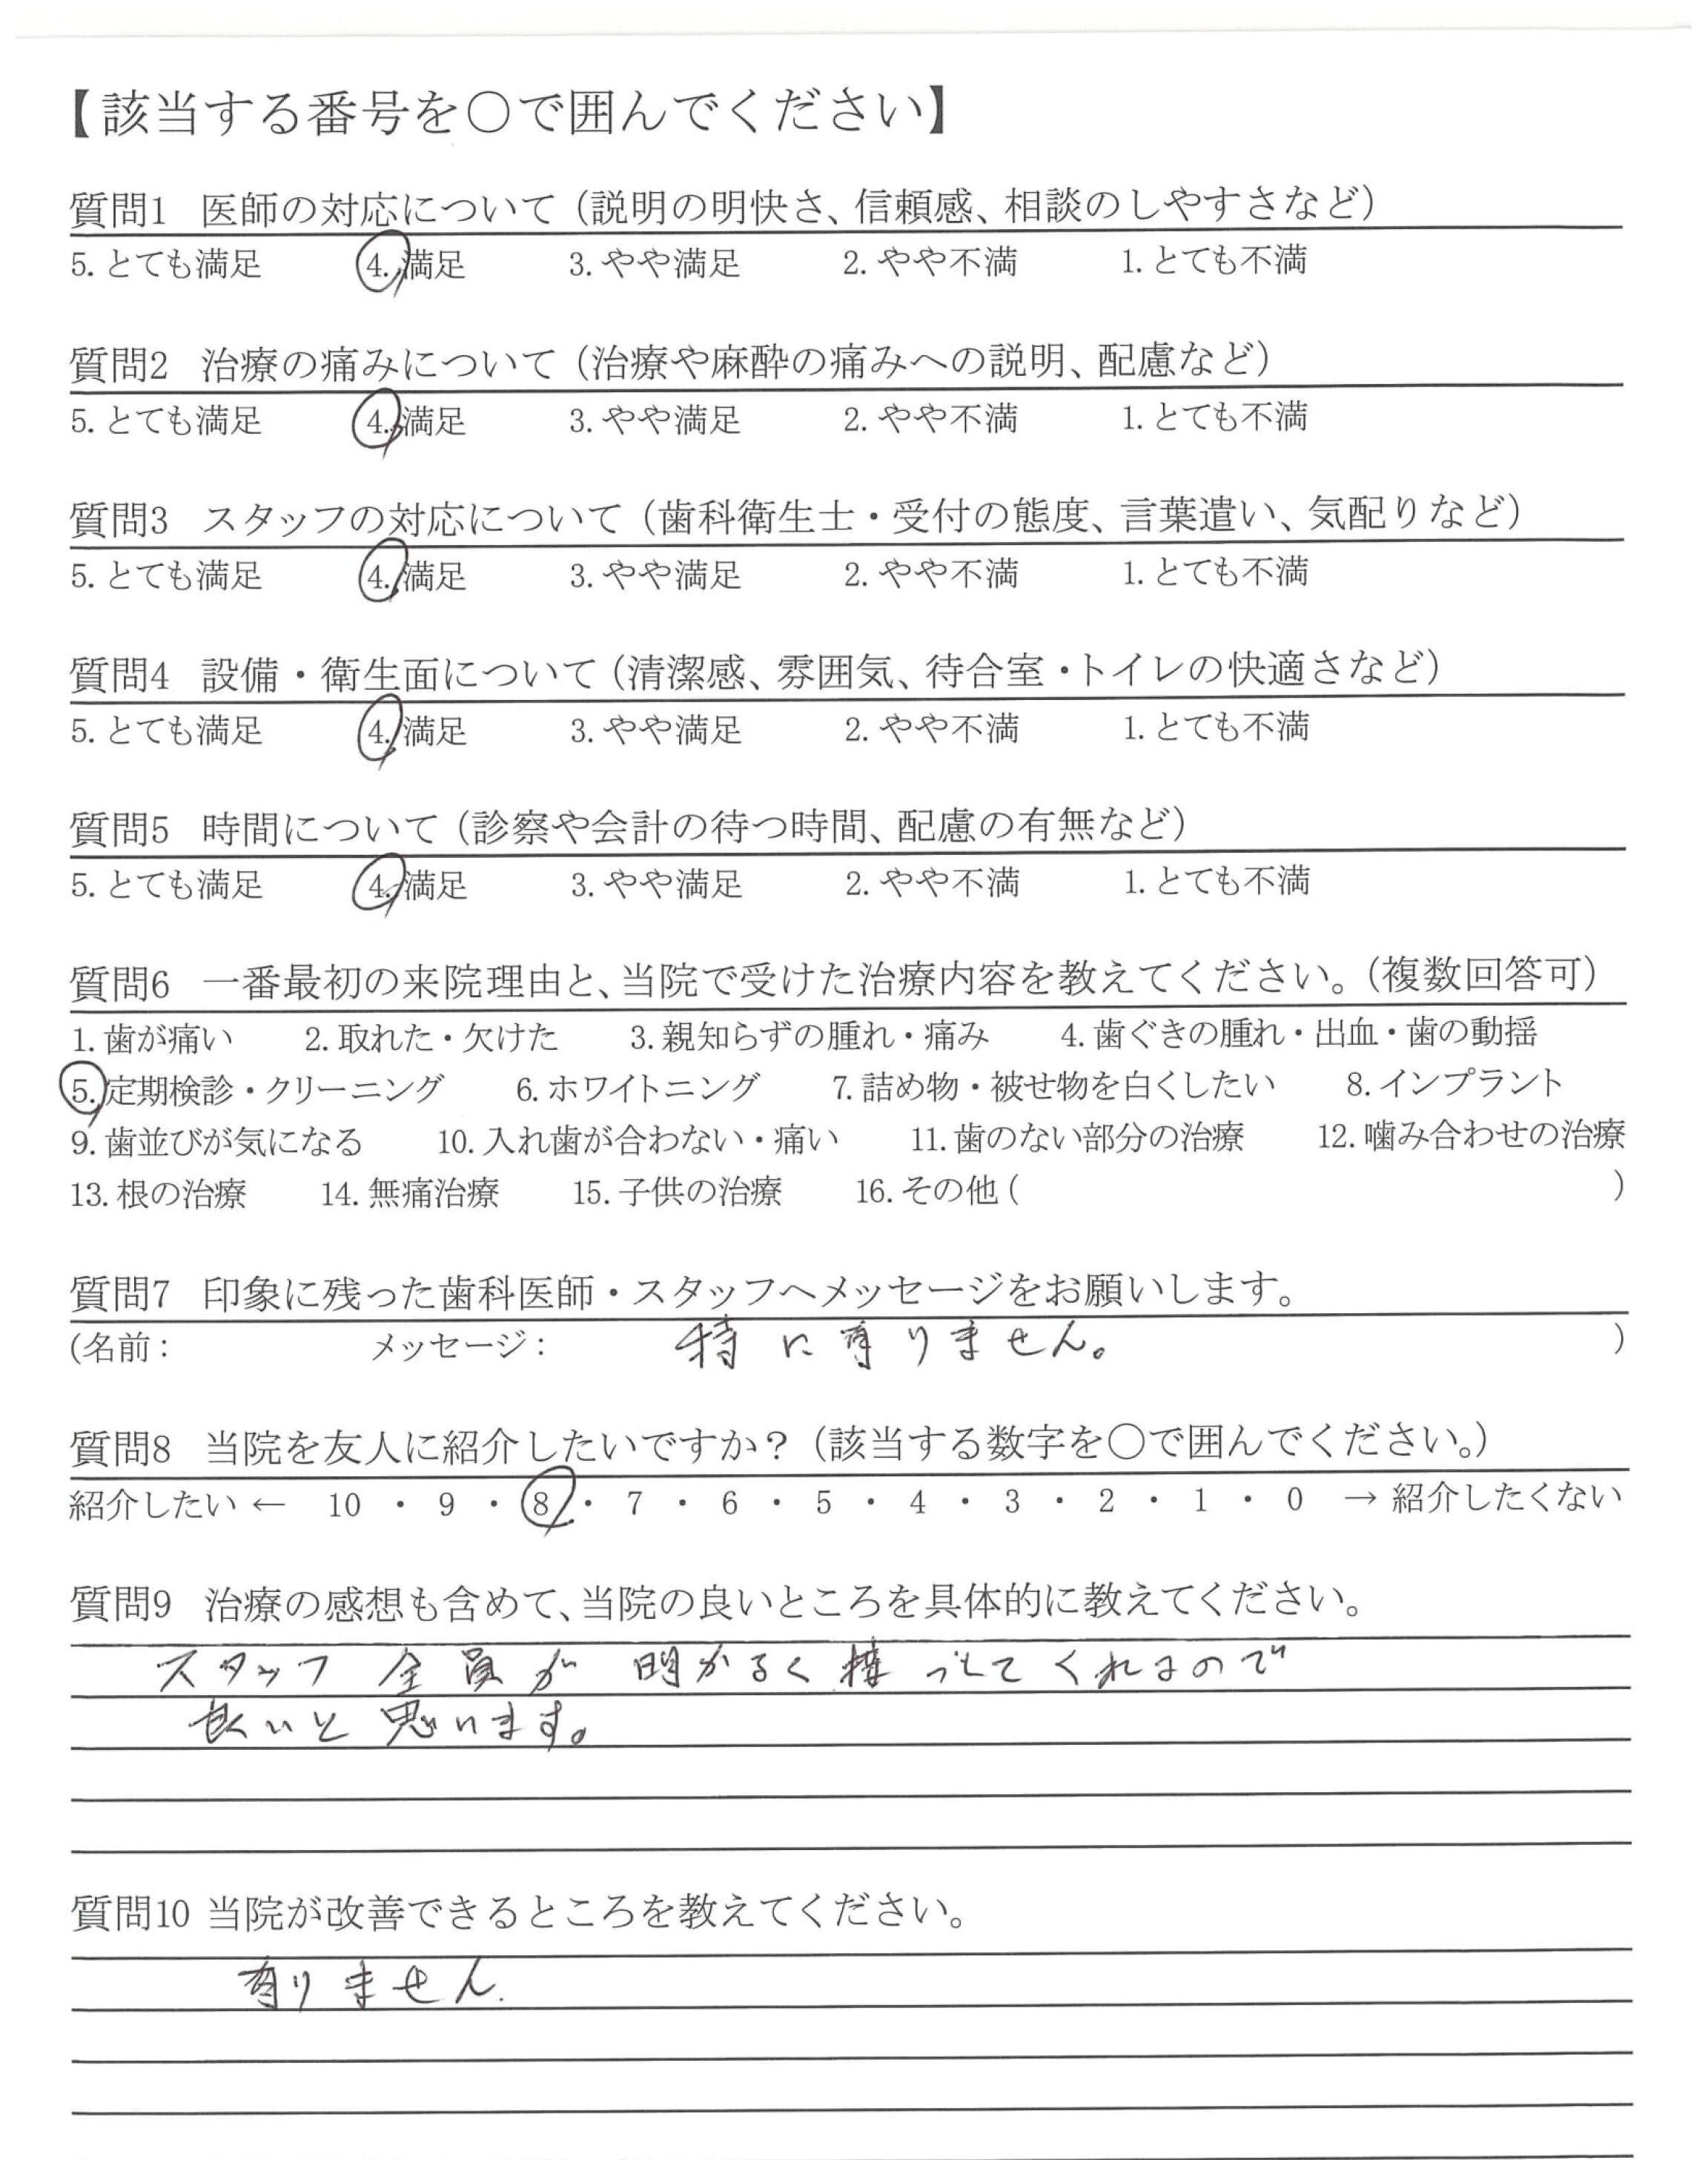 【該当する番号を○で囲んでください】
質問1 医師の対応について（説明の明快さ、信頼感、相談のしやすさなど）
5. とても満足 4. 満足 3. やや満足 2. やや不満 1. とても不満
質問2 治療の痛みについて（治療や麻酔の痛みへの説明、配慮など）
5. とても満足 4. 満足 3. やや満足 2. やや不満 1. とても不満
質問3 スタッフの対応について（歯科衛生士・受付の態度、言葉遣い、気配りなど）
5. とても満足 4. 満足 3. やや満足 2. やや不満 1. とても不満
質問4 設備・衛生面について（清潔感、雰囲気、待合室・トイレの快適さなど）
5. とても満足 4. 満足 3. やや満足 2. やや不満 1. とても不満
質問5 時間について（診察や会計の待つ時間、配慮の有無など）
5. とても満足 4. 満足 3. やや満足 2. やや不満 1. とても不満
質問6 一番最初の来院理由と、当院で受けた治療内容を教えてください。（複数回答可）
1. 歯が痛い 2. 取れた・欠けた 3. 親知らずの腫れ・痛み 4. 歯ぐきの腫れ・出血・歯の動揺
5. 定期検診・クリーニング 6. ホワイトニング 7. 詰め物・被せ物を白くしたい 8. インプラント
9. 歯並びが気になる 10. 入れ歯が合わない・痛い 11. 歯のない部分の治療 12. 噛み合わせの治療
13. 根の治療 14. 無痛治療 15. 子供の治療 16. その他 ( )
質問7 印象に残った歯科医師・スタッフへメッセージをお願いします。
(名前： メッセージ： 特に有りません。 )
質問8 当院を友人に紹介したいですか？（該当する数字を○で囲んでください。）
紹介したい ← 10 ・ 9 ・ 8 ・ 7 ・ 6 ・ 5 ・ 4 ・ 3 ・ 2 ・ 1 ・ 0 → 紹介したくない
質問9 治療の感想も含めて、当院の良いところを具体的に教えてください。
スタッフ全員が明かるく接っしてくれるので
良いと思います。
質問10 当院が改善できるところを教えてください。
有りません.